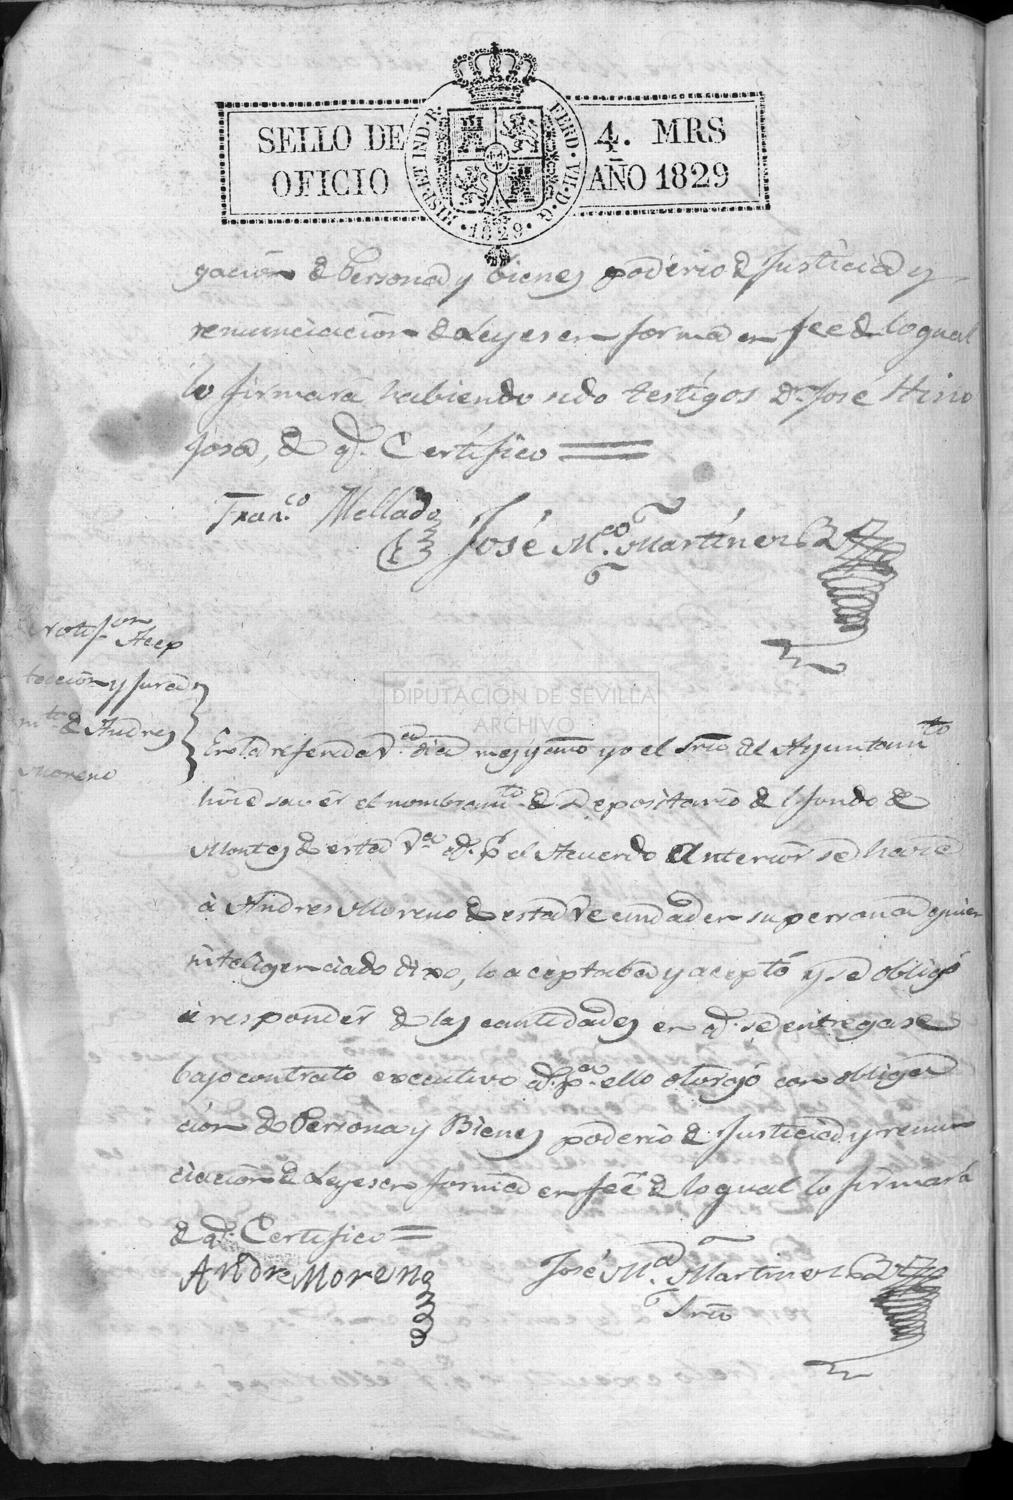 SELLO DE OFICIO
4. MRS
AÑO 1829
HISP. ET IND. R.
FERD. VII. D. G.
1829
gacion de Persona y bienes poderio de Justicia y
renunciacion de Leyes en forma en fee de lo qual
lo firmará habiendo sido testigos Dn. José Hino
josa, de q. Certifico
Fran.co Mellado
José M.a Martinez
Notif.on Acep
tacion y Juram
mto de Andres
Moreno
En la referida V.a dia mes y año yo el Srio del Ayuntam.to
hice saver el nombram.to de Depositario de l fondo de
Montes de esta V.a q. p.r el Acuerdo anterior se hace
à Andres Moreno de esta Vecindad en su persona quien
inteligenciado dixo, lo aceptaba y aceptó y se obligó
à responder de las cantidades en q. se entregase
bajo contrato executivo q. p.a ello otorgó con obliga
cion de Persona y Bienes poderio de Justicia y renun
ciacion de Leyes en forma en feé de lo qual lo firmará
de q. Certifico
Andre Moreno
José M.a Martinez
Srio
DIPUTACIÓN DE SEVILLA
ARCHIVO